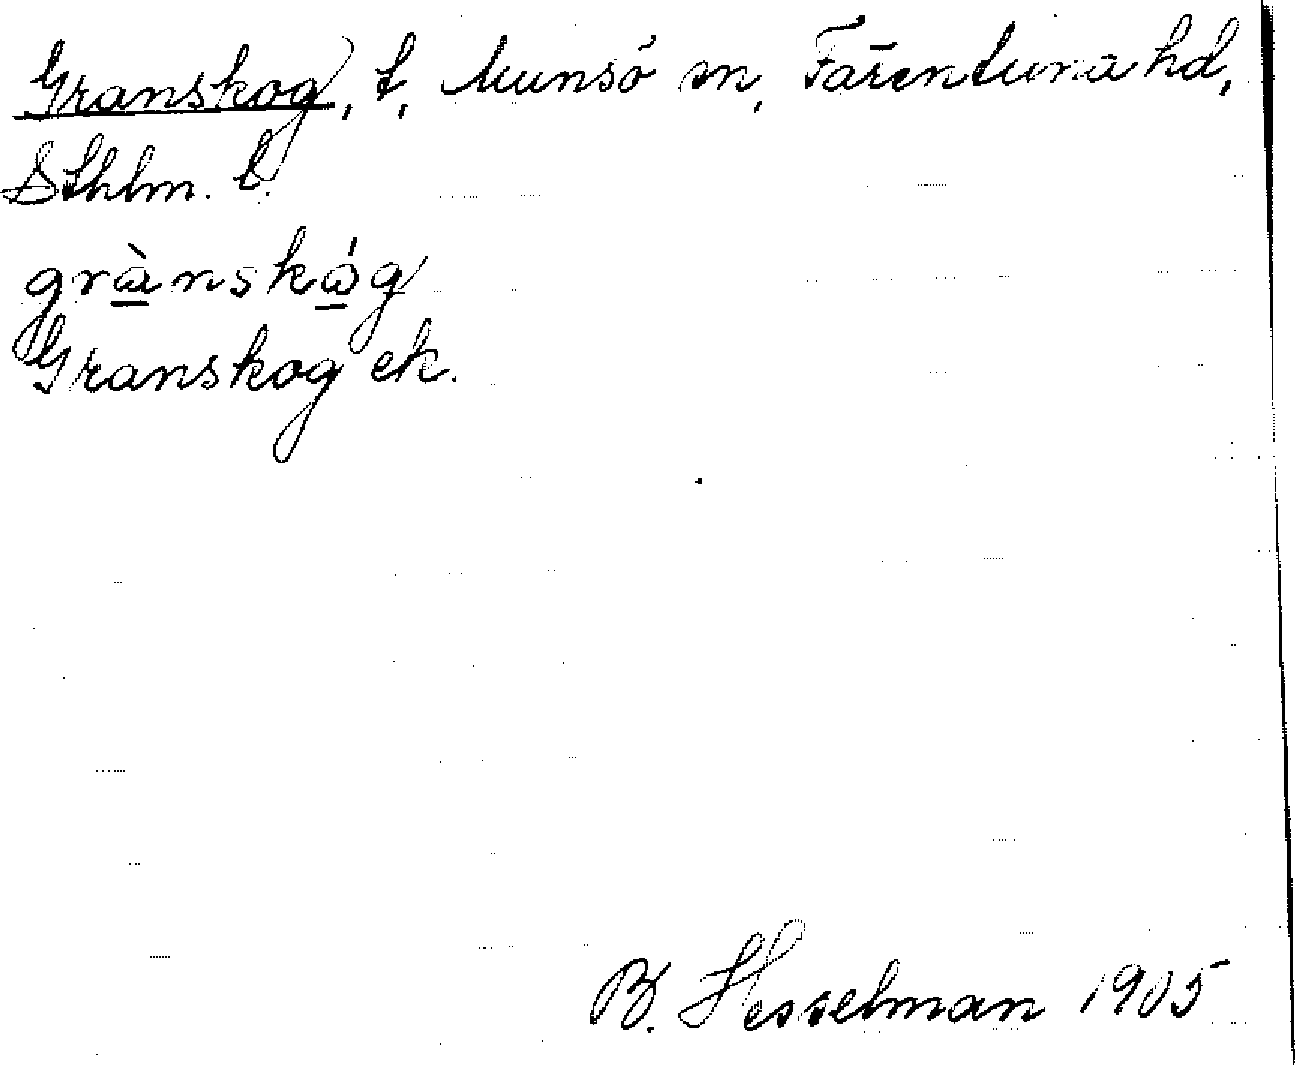 Granskog, t, Munsö sn, Färentuna hd,
Sthlm. l.
grànskóg
Granskog ek.
B. Hesselman 1905